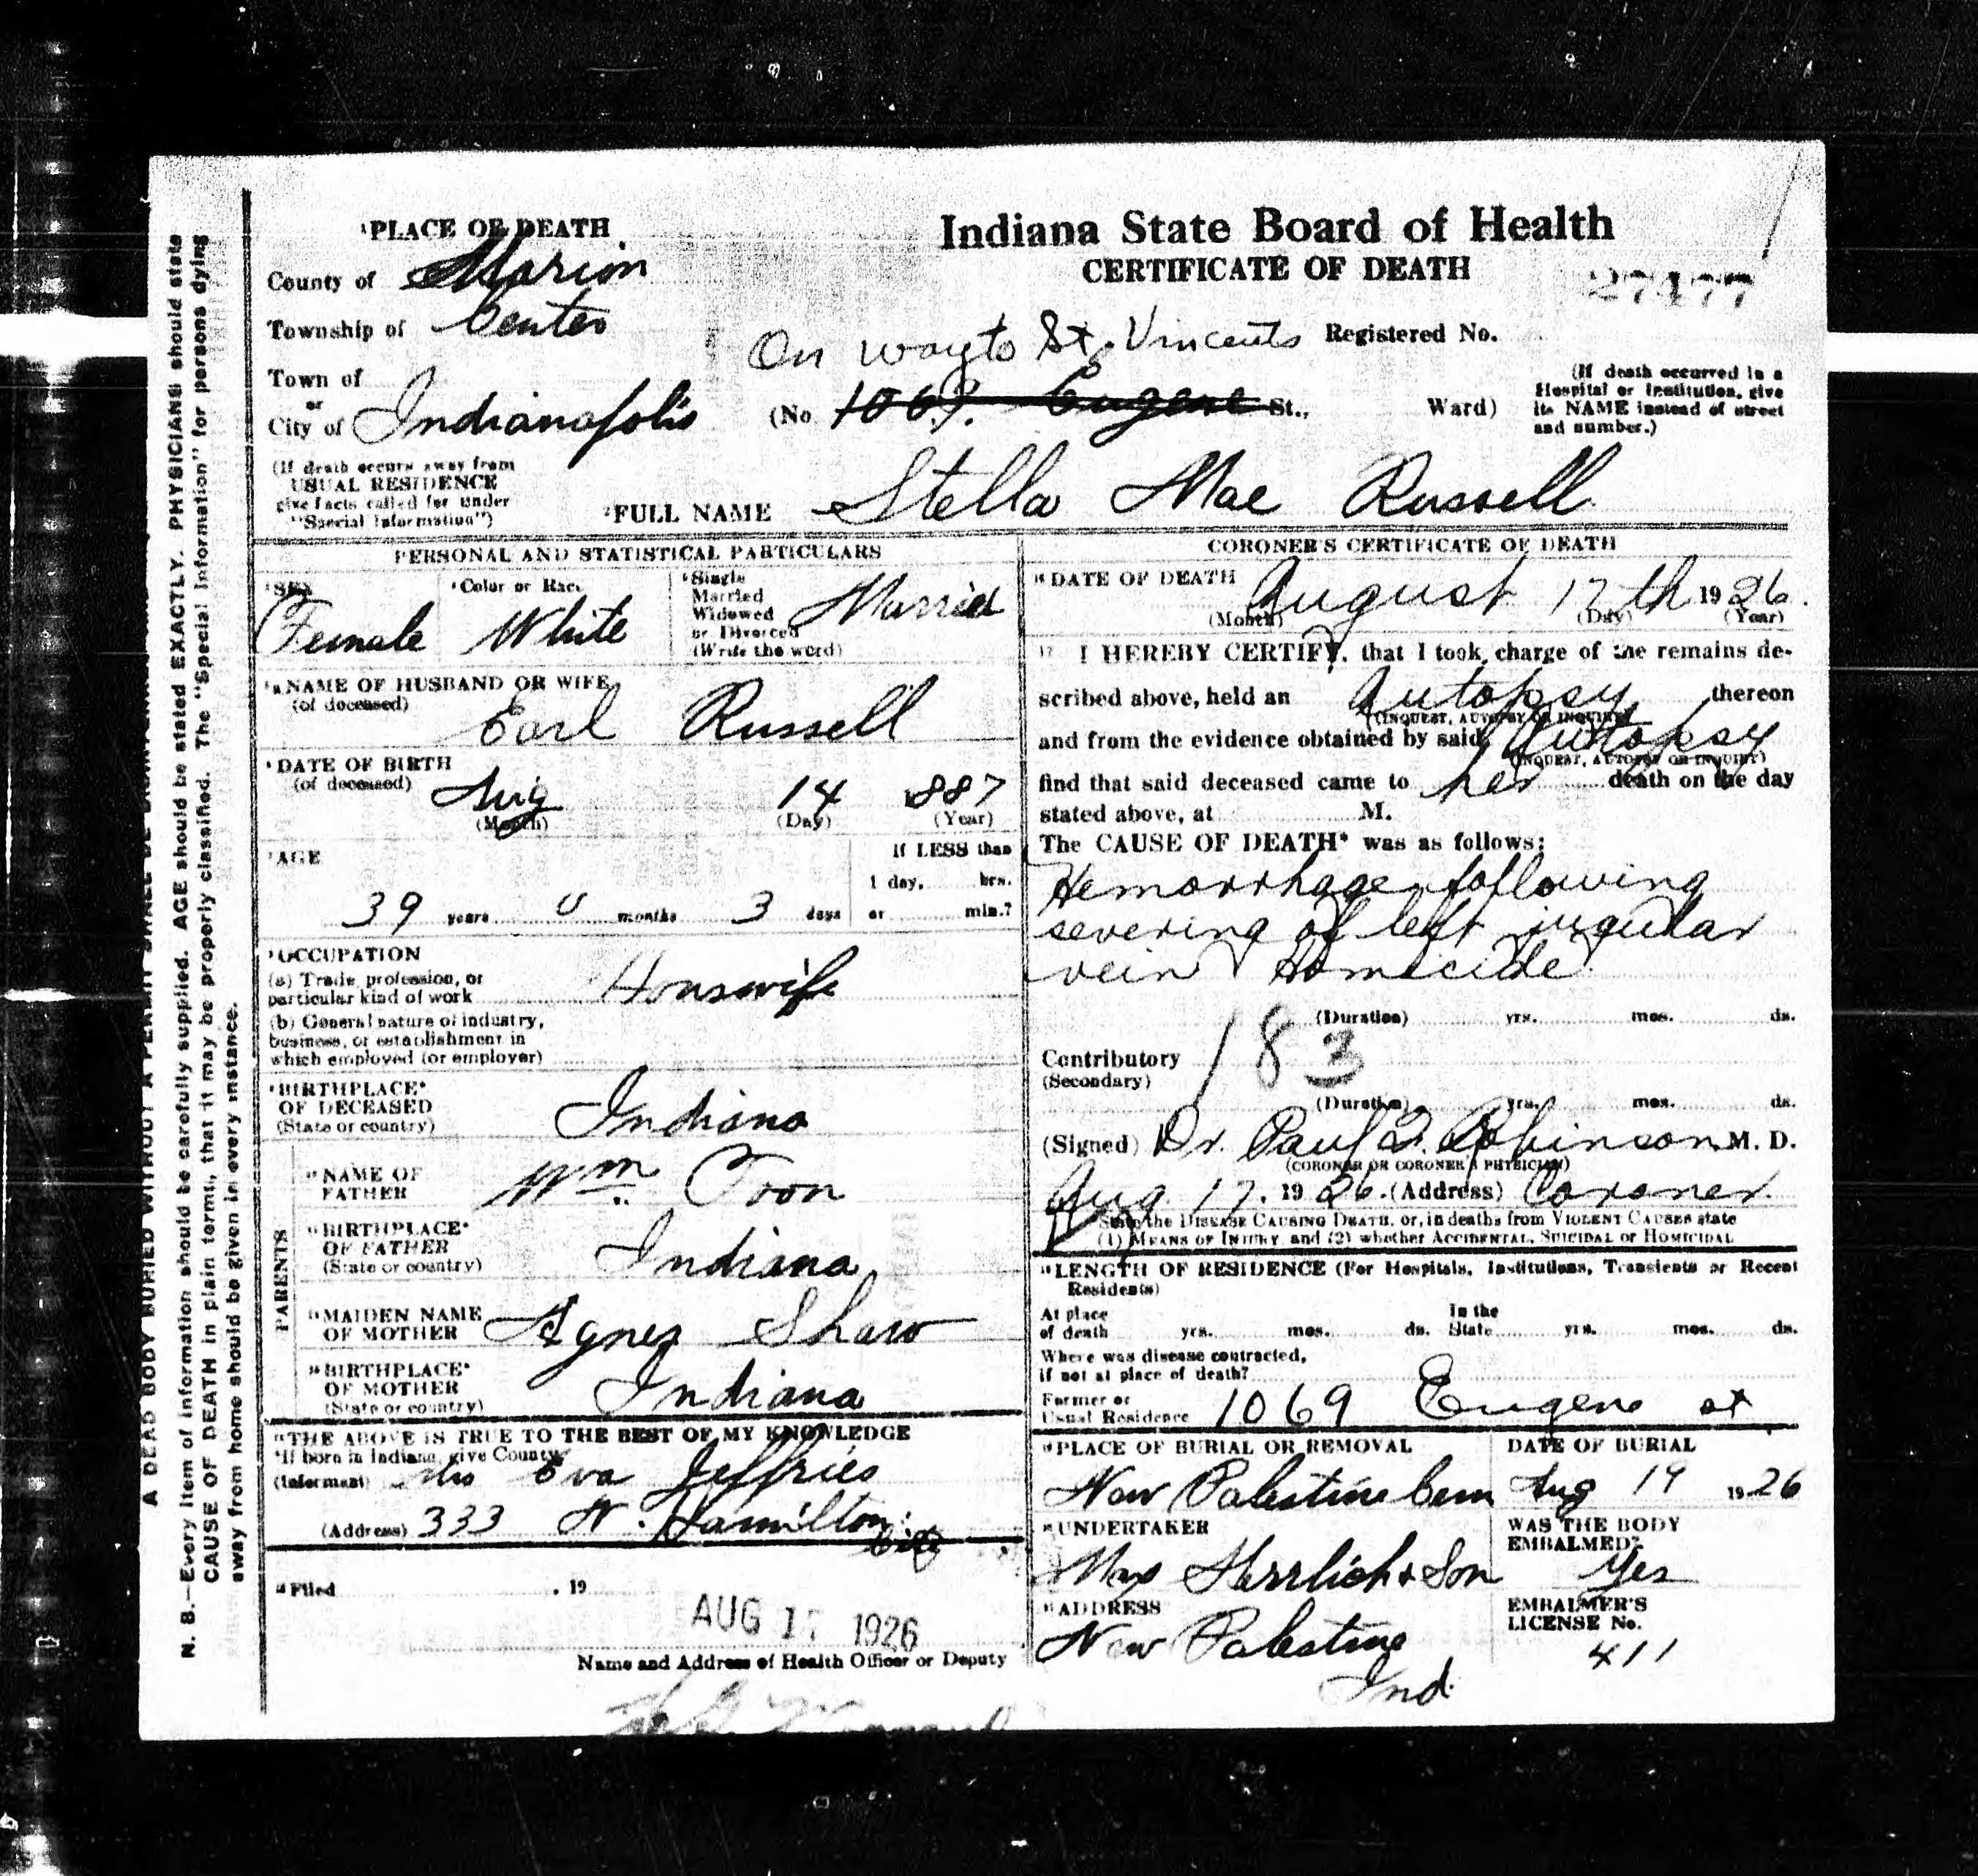 PLACE OF DEATH
County of Marion
Township of Center
Town of
or
City of Indianapolis
(If death occurs away from
USUAL RESIDENCE
give facts called for under
"Special Information")
Indiana State Board of Health
CERTIFICATE OF DEATH
27477
On way to St. Vincents Registered No.
(No. 1069. Eugene St., Ward)
(If death occurred in a
Hospital or Institution, give
its NAME instead of street
and number.)
FULL NAME Stella Mae Russell
PERSONAL AND STATISTICAL PARTICULARS
SEX
Female
Color or Race
White
Single
Married
Widowed
or Divorced
(Write the word)
Married
NAME OF HUSBAND OR WIFE
(of deceased)
Earl Russell
DATE OF BIRTH
(of deceased)
Aug 14 1887
(Month) (Day) (Year)
AGE
39 years 0 months 3 days
If LESS than
1 day, hrs.
or min.?
OCCUPATION
(a) Trade, profession, or
particular kind of work Houswife
(b) General nature of industry,
business, or establishment in
which employed (or employer)
BIRTHPLACE*
OF DECEASED
(State or country)
Indiana
PARENTS
NAME OF
FATHER
Wm Toon
BIRTHPLACE*
OF FATHER
(State or country)
Indiana
MAIDEN NAME
OF MOTHER
Agnes Shaw
BIRTHPLACE*
OF MOTHER
(State or country)
Indiana
THE ABOVE IS TRUE TO THE BEST OF MY KNOWLEDGE
*If born in Indiana, give County
(Informant) Mrs Eva Jeffries
(Address) 333 N. Hamilton
City
Filed , 19
AUG 17 1926
Name and Address of Health Officer or Deputy
CORONER'S CERTIFICATE OF DEATH
DATE OF DEATH
August 17th 1926.
(Month) (Day) (Year)
17 I HEREBY CERTIFY, that I took charge of the remains de-
scribed above, held an Autopsy thereon
(INQUEST, AUTOPSY OR INQUIRY)
and from the evidence obtained by said Autopsy
(INQUEST, AUTOPSY OR INQUIRY)
find that said deceased came to her death on the day
stated above, at M.
The CAUSE OF DEATH* was as follows:
Hemorrhage following
severing of left jugular
vein Homecide
(Duration) yrs. mos. ds.
183
Contributory
(Secondary)
(Duration) yrs. mos. ds.
(Signed) Dr. Paul F. Robinson M. D.
(CORONER OR CORONER'S PHYSICIAN)
Aug 17. 1926. (Address) Coroner.
State the DISEASE CAUSING DEATH, or, in deaths from VIOLENT CAUSES state
(1) MEANS OF INJURY, and (2) whether ACCIDENTAL, SUICIDAL or HOMICIDAL
LENGTH OF RESIDENCE (For Hospitals, Institutions, Transients or Recent
Residents)
At place
of death yrs. mos. ds.
In the
State yrs. mos. ds.
Where was disease contracted,
if not at place of death?
Former or
Usual Residence 1069 Eugene st
PLACE OF BURIAL OR REMOVAL
New Palestine Cem
DATE OF BURIAL
Aug 19 1926
UNDERTAKER
Max Herrlich & Son
WAS THE BODY
EMBALMED?
Yes
ADDRESS
New Palestine
Ind.
EMBALMER'S
LICENSE No.
411
A DEAD BODY BURIED WITHOUT A PERMIT SHALL BE
N. B.—Every item of information should be carefully supplied. AGE should be stated EXACTLY. PHYSICIANS should state
CAUSE OF DEATH in plain terms, that it may be properly classified. The "Special Information" for persons dying
away from home should be given in every instance.